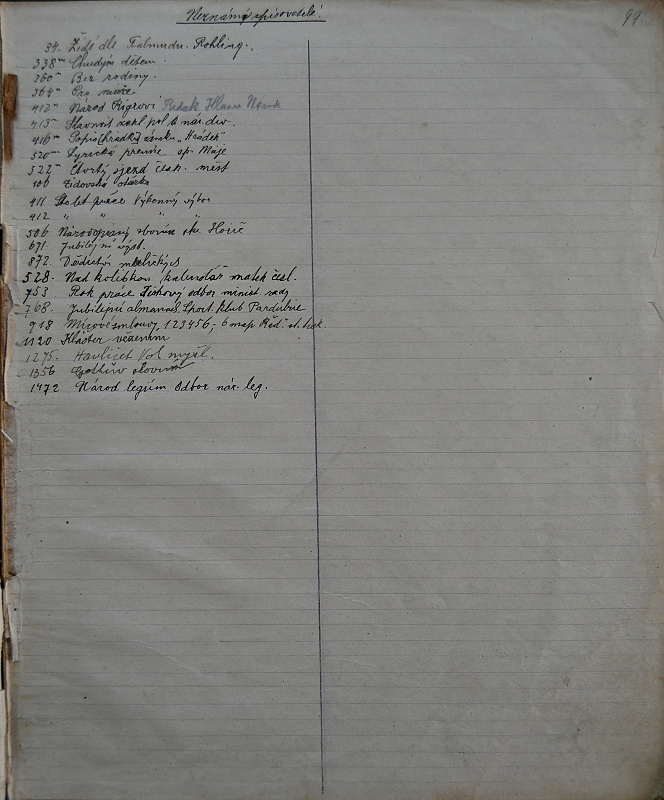 Neznámý spisovatelé!
99
34. Židé dle Talmudu. Rohling.
338 Chudým dětem
360 Bez rodiny.
364 Pro
412 Národ Rigrovi Redak
415 Slavnost zákl. pol. k nár. div.
416 Popis (hrádku) zámku „Hrádek"
520 Lyrická premie sp. Máje
522 Čtvrtý sjezd česk. měst
106 Židovská otázka
411 Stolet práce Výkonný výbor
412 " " " "
506 Národopisný sborník okr. Hořic
671. Jubilejní výst.
872. Dědictví
528. Nad kolébkou kalendář matek česl.
753 Rok práce Tiskový odbor minist rady
768. Jubilejní almanach Sport. klub Pardubice
918 Mírové smlouvy, 123456; 6 map Řed. st. tisk.
1120 Klášter
1275. Havlíček Vol. mysl.
1356 slovník
1472 Národ legiím Odbor nár. leg.